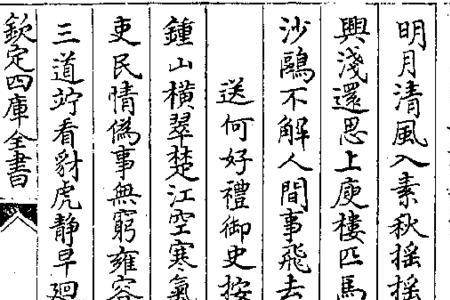 明月清風入素秋揺揺
興淺還思上庾樓匹馬
沙鷗不解人間事飛去
送何好禮御史按
鍾山横翠楚江空寒氣
吏民情偽事無窮雍容
三道竚看豺虎静早廻
欽定四庫全書